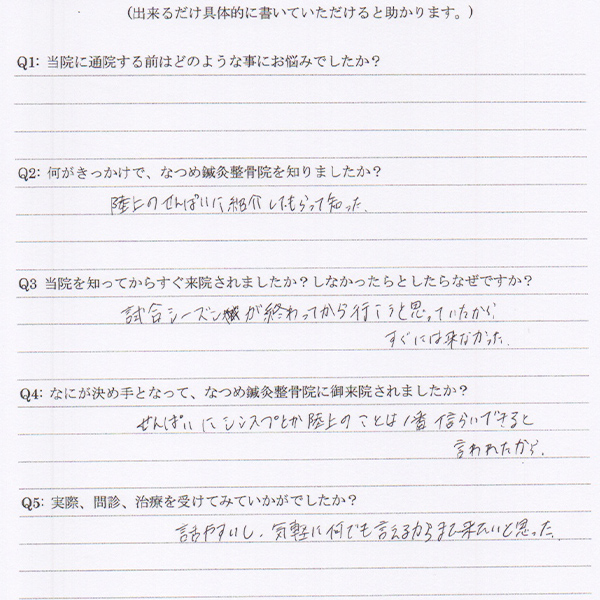 (出来るだけ具体的に書いていただけると助かります。)
Q1: 当院に通院する前はどのような事にお悩みでしたか?
Q2: 何がきっかけで、なつめ鍼灸整骨院を知りましたか?
陸上のせんぱいに紹介してもらって知った.
Q3 当院を知ってからすぐ来院されましたか?しなかったらとしたらなぜですか?
試合シーズンが終わってから行こうと思っていたから
すぐには来なかった.
Q4: なにが決め手となって、なつめ鍼灸整骨院に御来院されましたか?
せんぱいにシンスプとか陸上のことは1番信らいできると
言われたから.
Q5: 実際、問診、治療を受けてみていかがでしたか?
話やすいし、気軽に何でも言えるからまた来たいと思った.